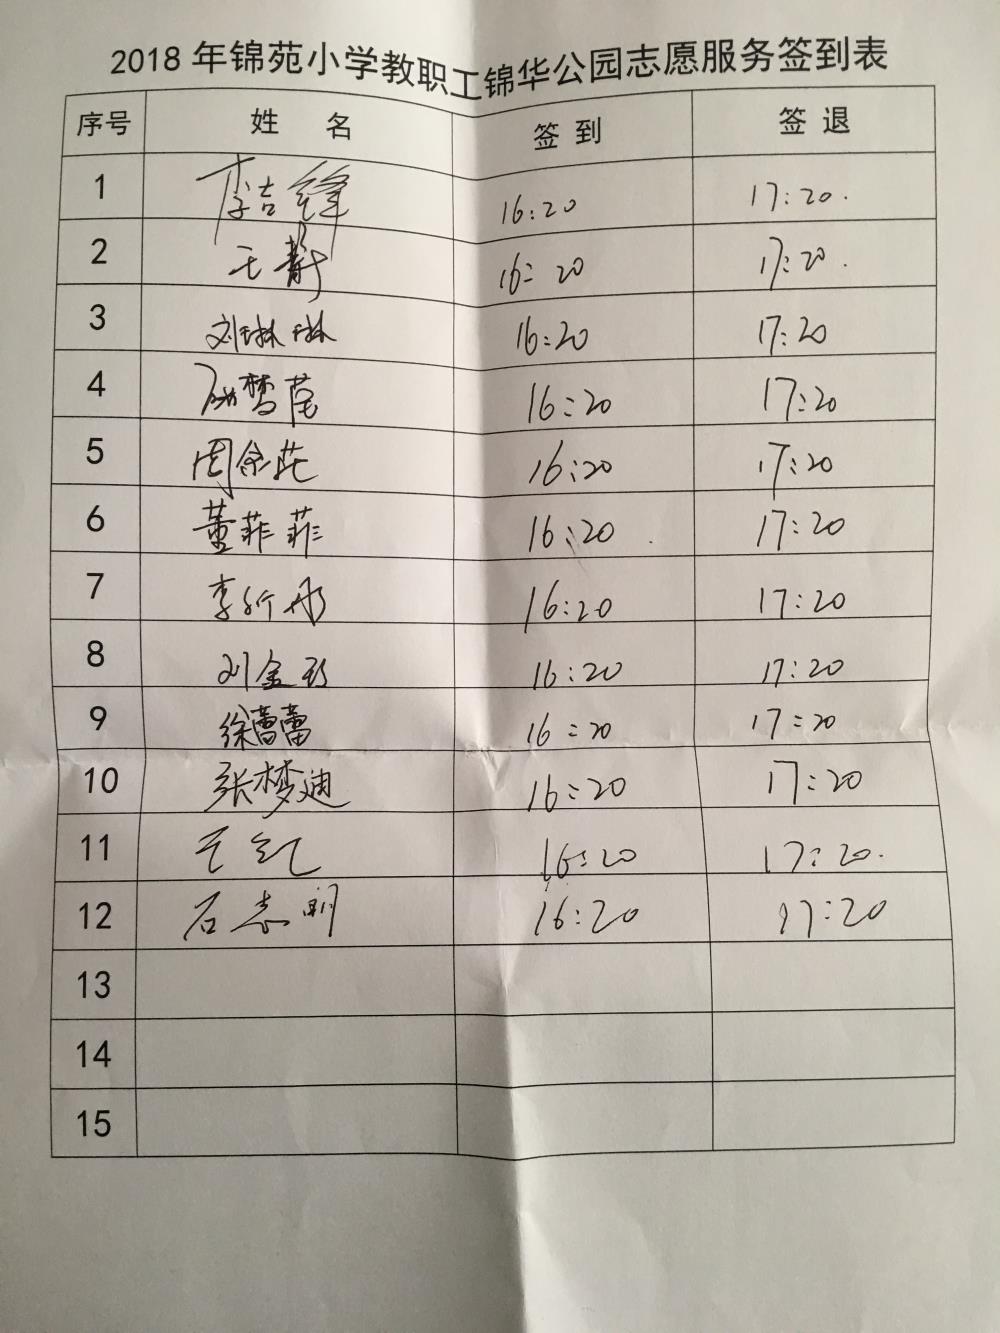 2018年锦苑小学教职工锦华公园志愿服务签到表
序号 姓 名 签 到 签 退
1 李吉锋 16:20 17:20.
2 王静 16:20 17:20.
3 刘琳琳 16:20 17:20
4 梦莹 16:20 17:20
5 周余芷 16:20 17:20
6 董菲菲 16:20 17:20
7 李彤 16:20 17:20
8 刘金 16:20 17:20
9 徐蕾蕾 16:20 17:20
10 张梦迪 16:20 17:20
11 王红 16:20 17:20.
12 石志明 16:20 17:20
13
14
15